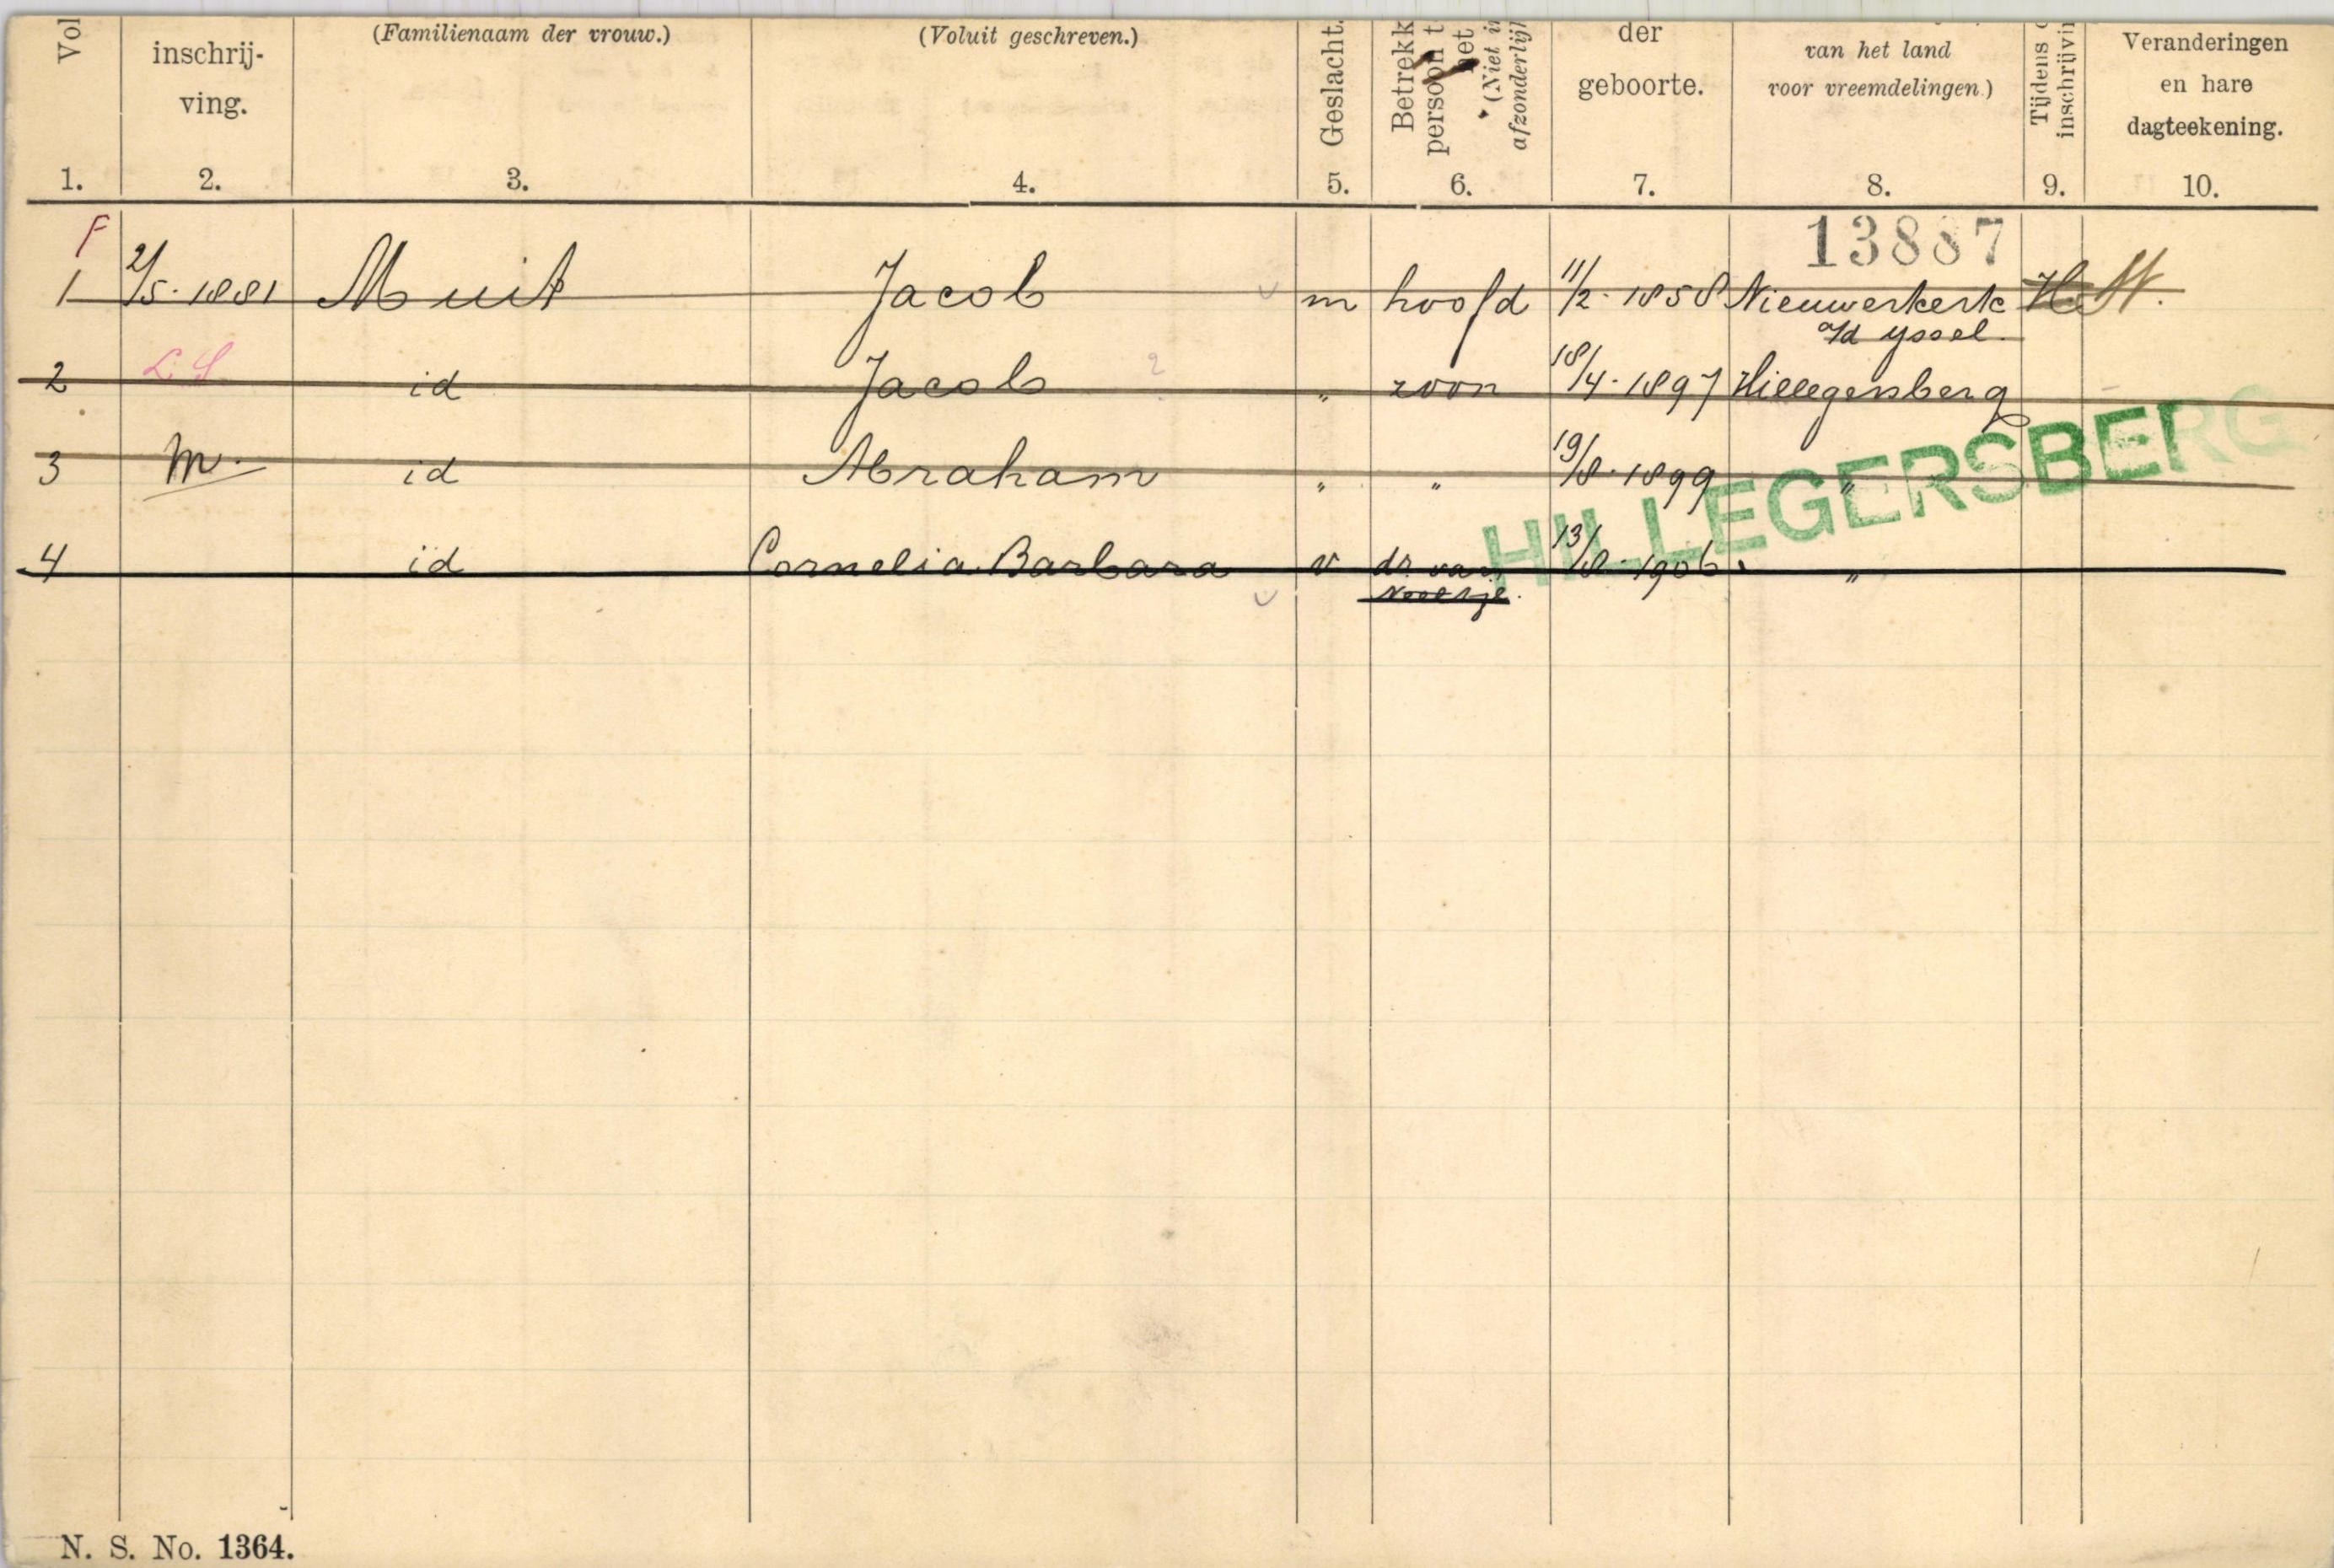 Vol inschrij- (Familienaam der vrouw.) (Voluit geschreven.) Geslacht. Betrekk persoon t het (Niet in afzonderlijk der van het land Tijdens inschrijvin Veranderingen
ving. geboorte. voor vreemdelingen.) en hare
dagteekening.
1. 2. 3. 4. 5. 6. 7. 8. 9. 10.
F 13887
1 2/5.1881 Muit Jacob m hoofd 11/2.1858 Nieuwerkerk H.
a/d yssel.
2 L.S. id Jacob 2 " zoon 18/4.1897 Hillegersberg
3 m. id Abraham " " 19/8.1899 "
HILLEGERSBERG
4 id Cornelia Barbara v dr van 13/8.1906. "
Neeltje.
N. S. No. 1364.